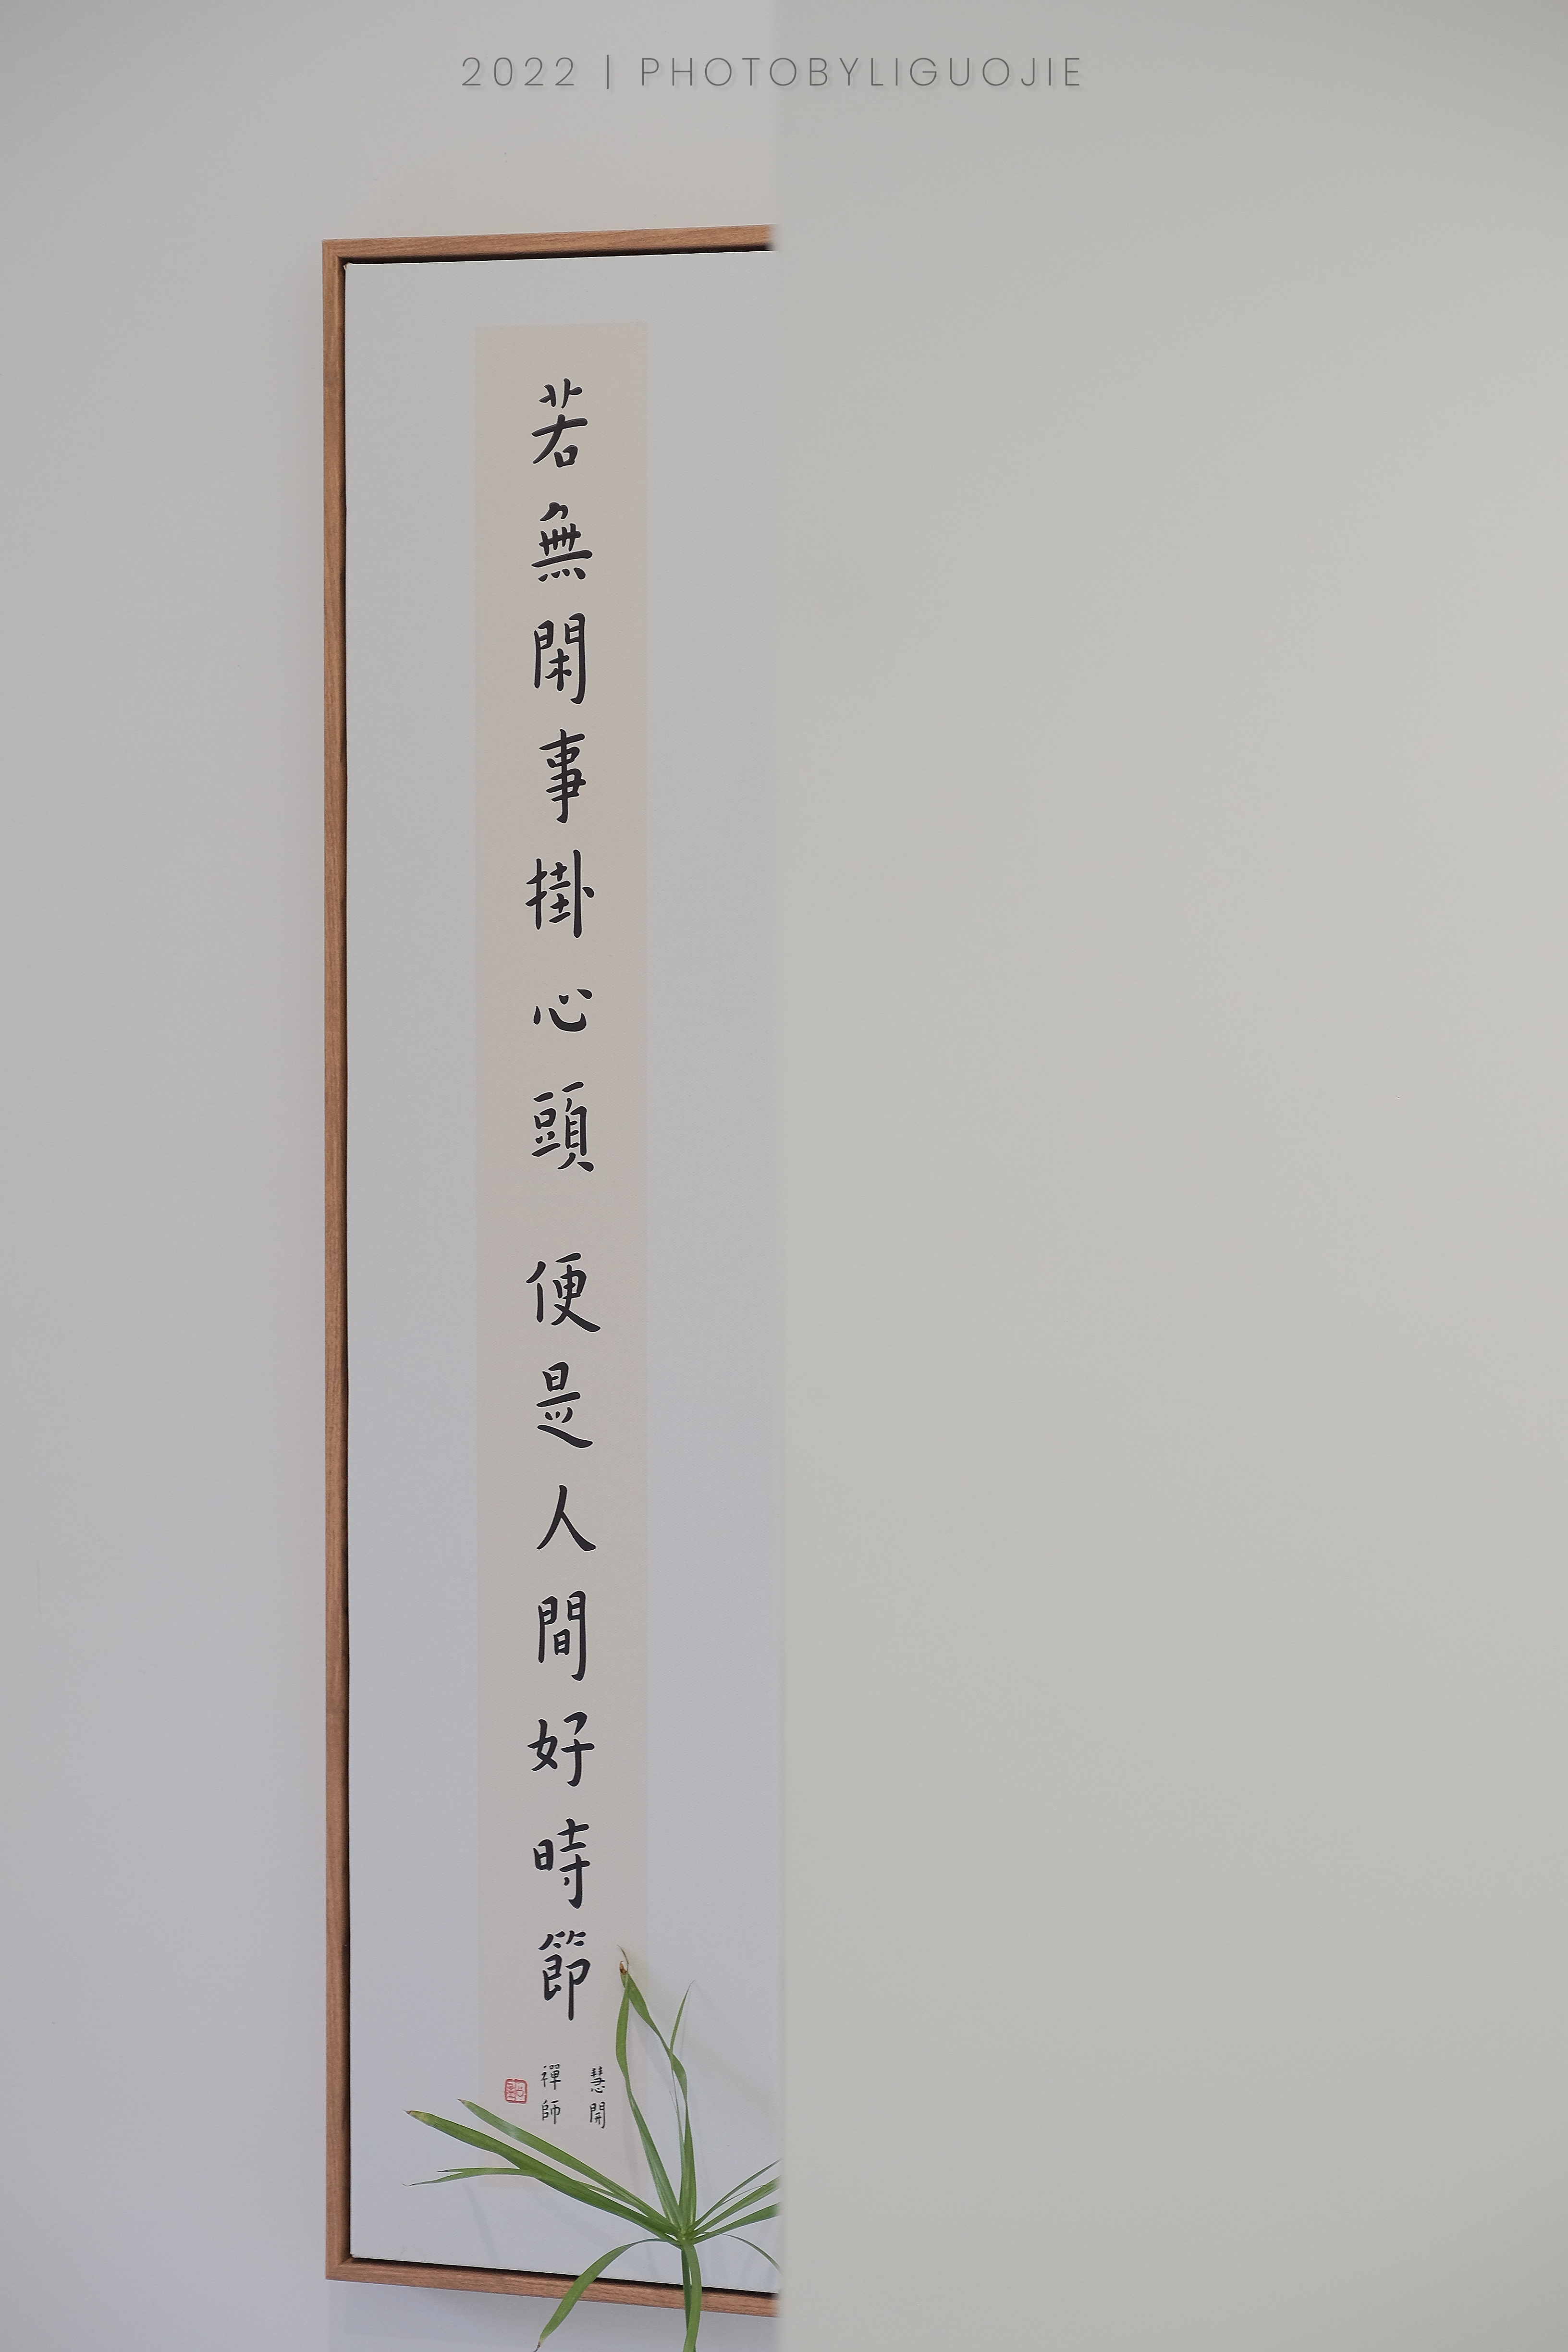 2022 | PHOTOBYLIGUOJIE
若無閑事掛心頭 便是人間好時節
慧開
禪師